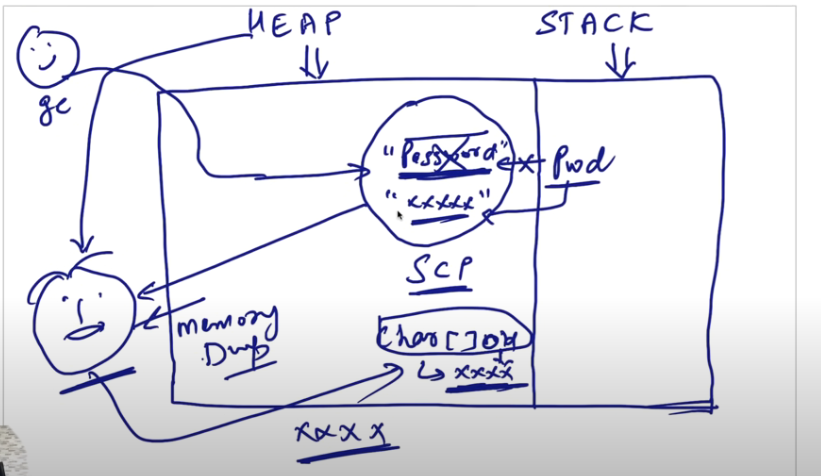 HEAP
STACK
gc
"Password"
Pwd
"xxxxx"
SCP
Memory
Dump
char[]
xxxx
xxxx